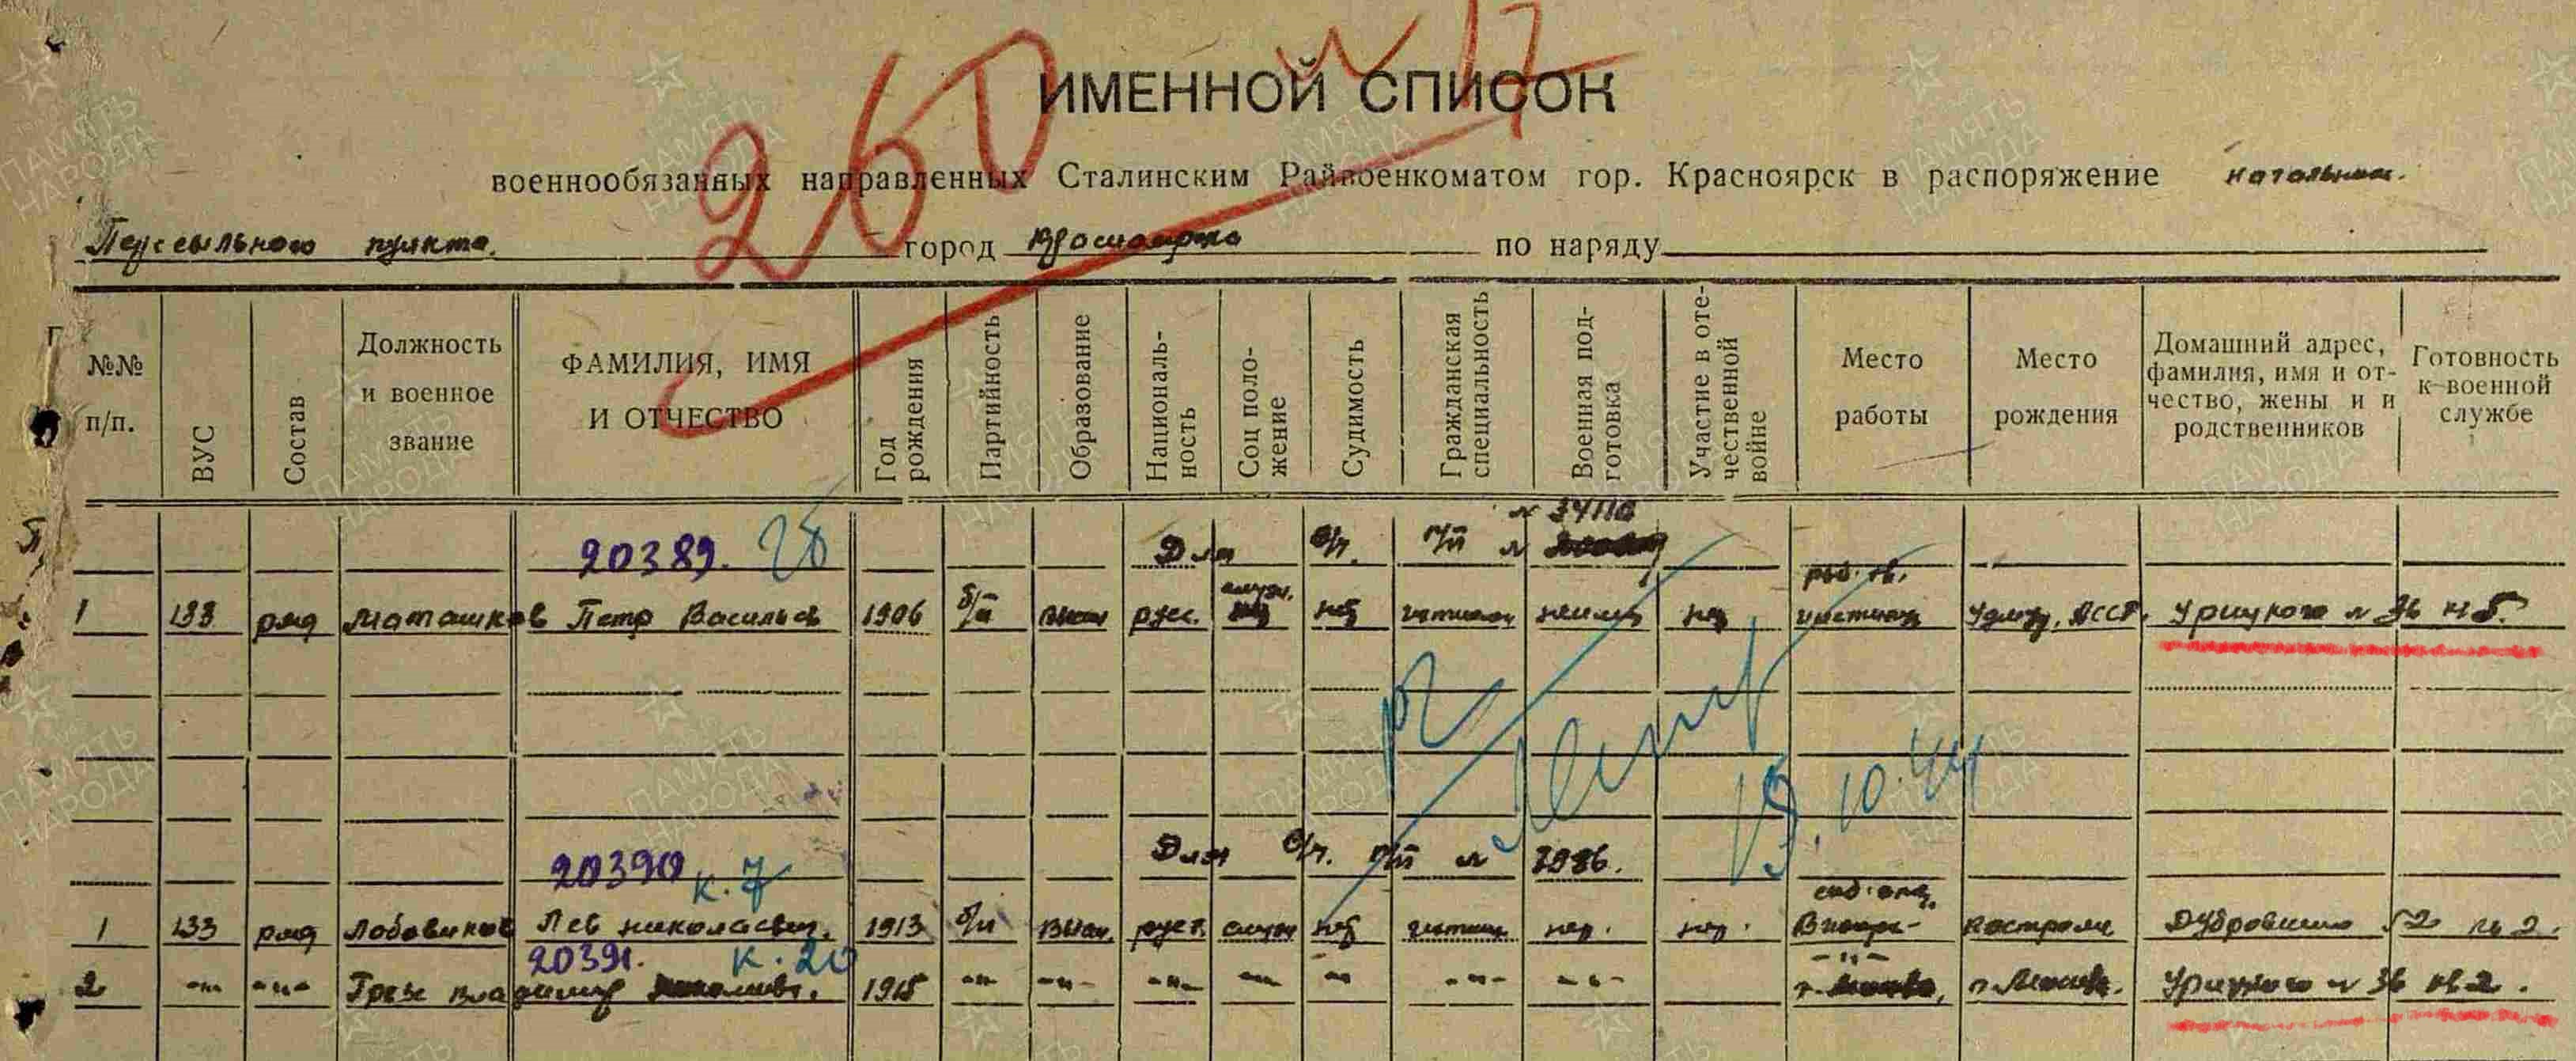 № 17
260
ИМЕННОЙ СПИСОК
военнообязанных направленных Сталинским Райвоенкоматом гор. Красноярск в распоряжение начальник.
Пересыльного пункта. город Красноярска по наряду
№№ п/п.
ВУС
Состав
Должность и военное звание
ФАМИЛИЯ, ИМЯ И ОТЧЕСТВО
Год рождения
Партийность
Образование
Националь-ность
Соц поло-жение
Судимость
Гражданская специальность
Военная под-готовка
Участие в оте-чественной войне
Место работы
Место рождения
Домашний адрес, фамилия, имя и от-чество, жены и и родственников
Готовность к военной службе
20389. 28
Для в/ч. п/п №
1 133 ряд Маташков Петр Васильев 1906 б/п высш русс. служ. нет нет Удмур. АССР. Урицкого № 36 кв 5.
13.10.44
20390 к. 7
Для в/ч. п/п №
1 133 ряд Лобовиков Лев Николаевич. 1913 б/п высш. русс. служ нет нет. нет. Кострома Дубровинского 52 кв 2.
20391. к. 20
2 -"- -"- Владимир 1915 -"- -"- -"- -"- -"- -"- -"- Урицкого № 36 кв 2.
ПАМЯТЬ НАРОДА